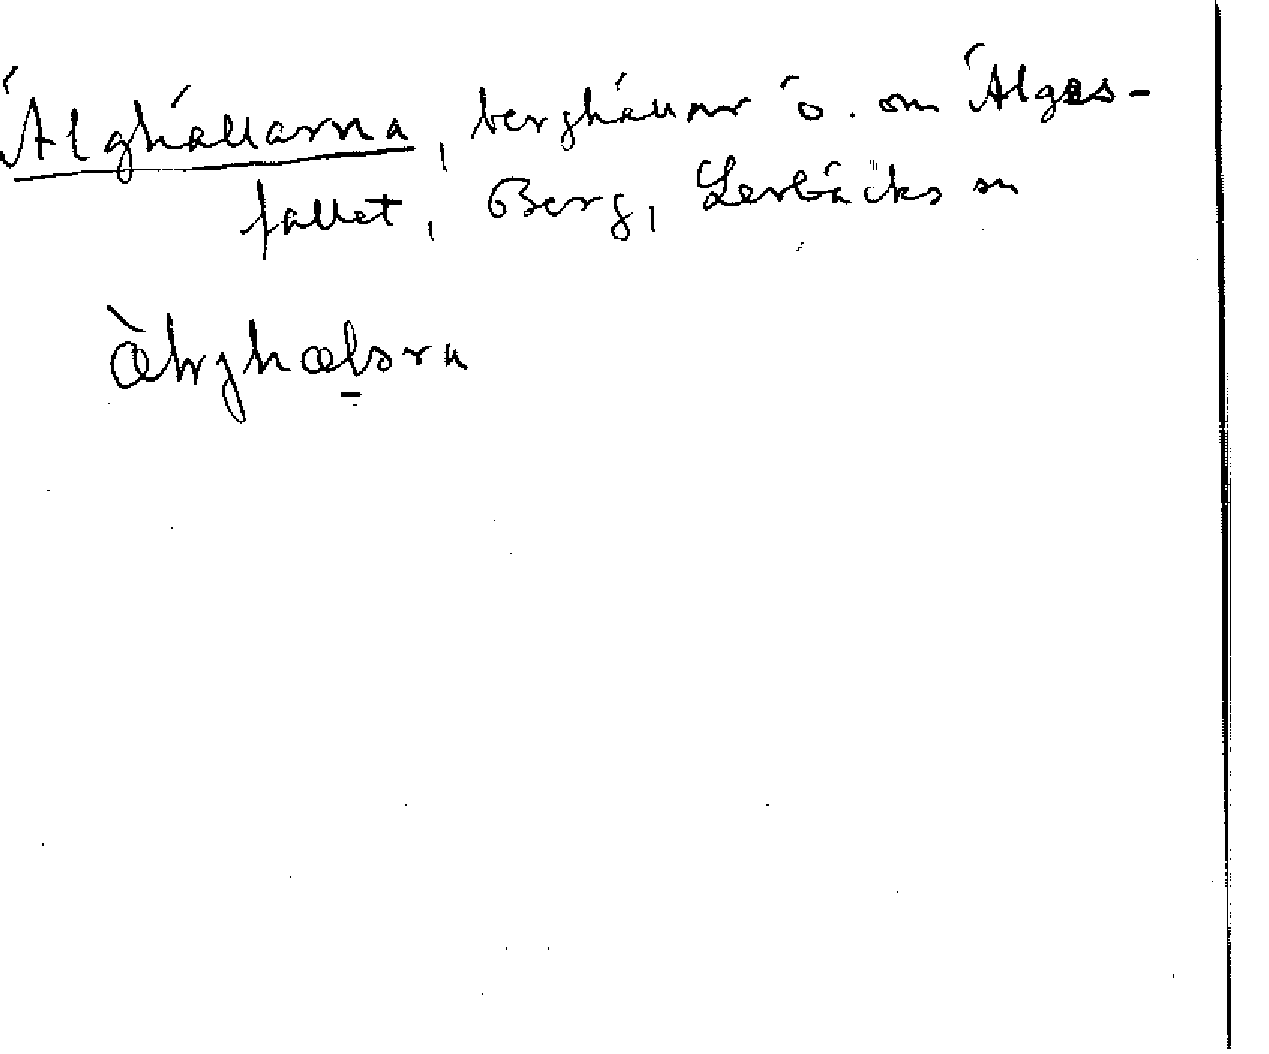 Älghällarna, berghällar ö. om Älgas-
fallet, Berg, Lerbäcks sn